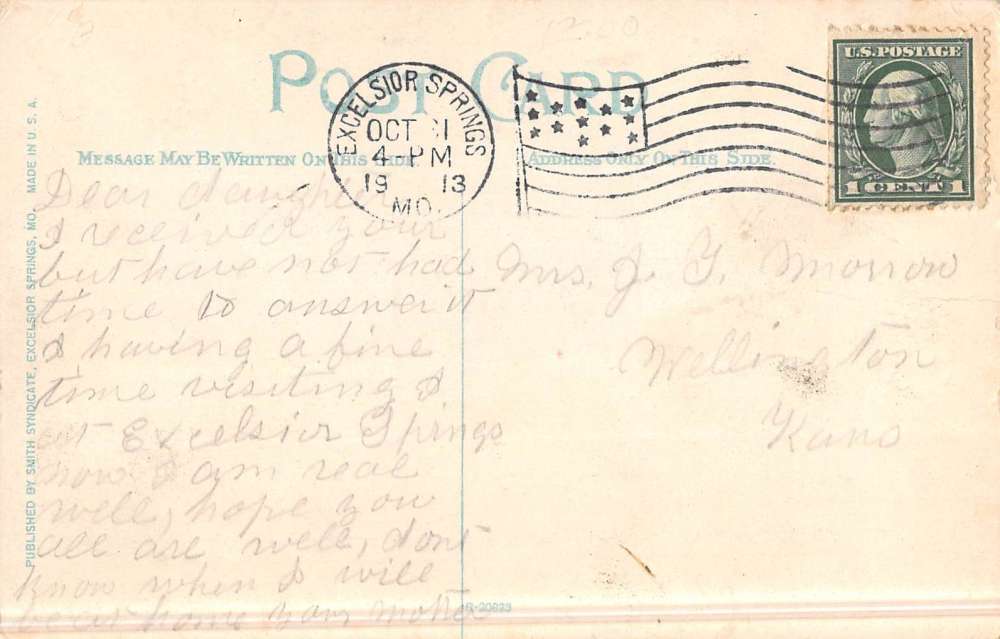 POST CARD
EXCELSIOR SPRINGS
OCT 31
4 PM
19 13
MO.
U.S. POSTAGE
1 CENT 1
MESSAGE MAY BE WRITTEN ON THIS SIDE
ADDRESS ONLY ON THIS SIDE.
PUBLISHED BY SMITH SYNDICATE, EXCELSIOR SPRINGS, MO. MADE IN U. S. A.
Dear daughter
I received your
but have not had
time to answer it
I having a fine
time visiting I
at Excelsior Springs
now I am real
well, hope you
all are well, dont
know when I will
home your mother
Mrs. J. G. Morrow
Wellington
Kans
R-20823